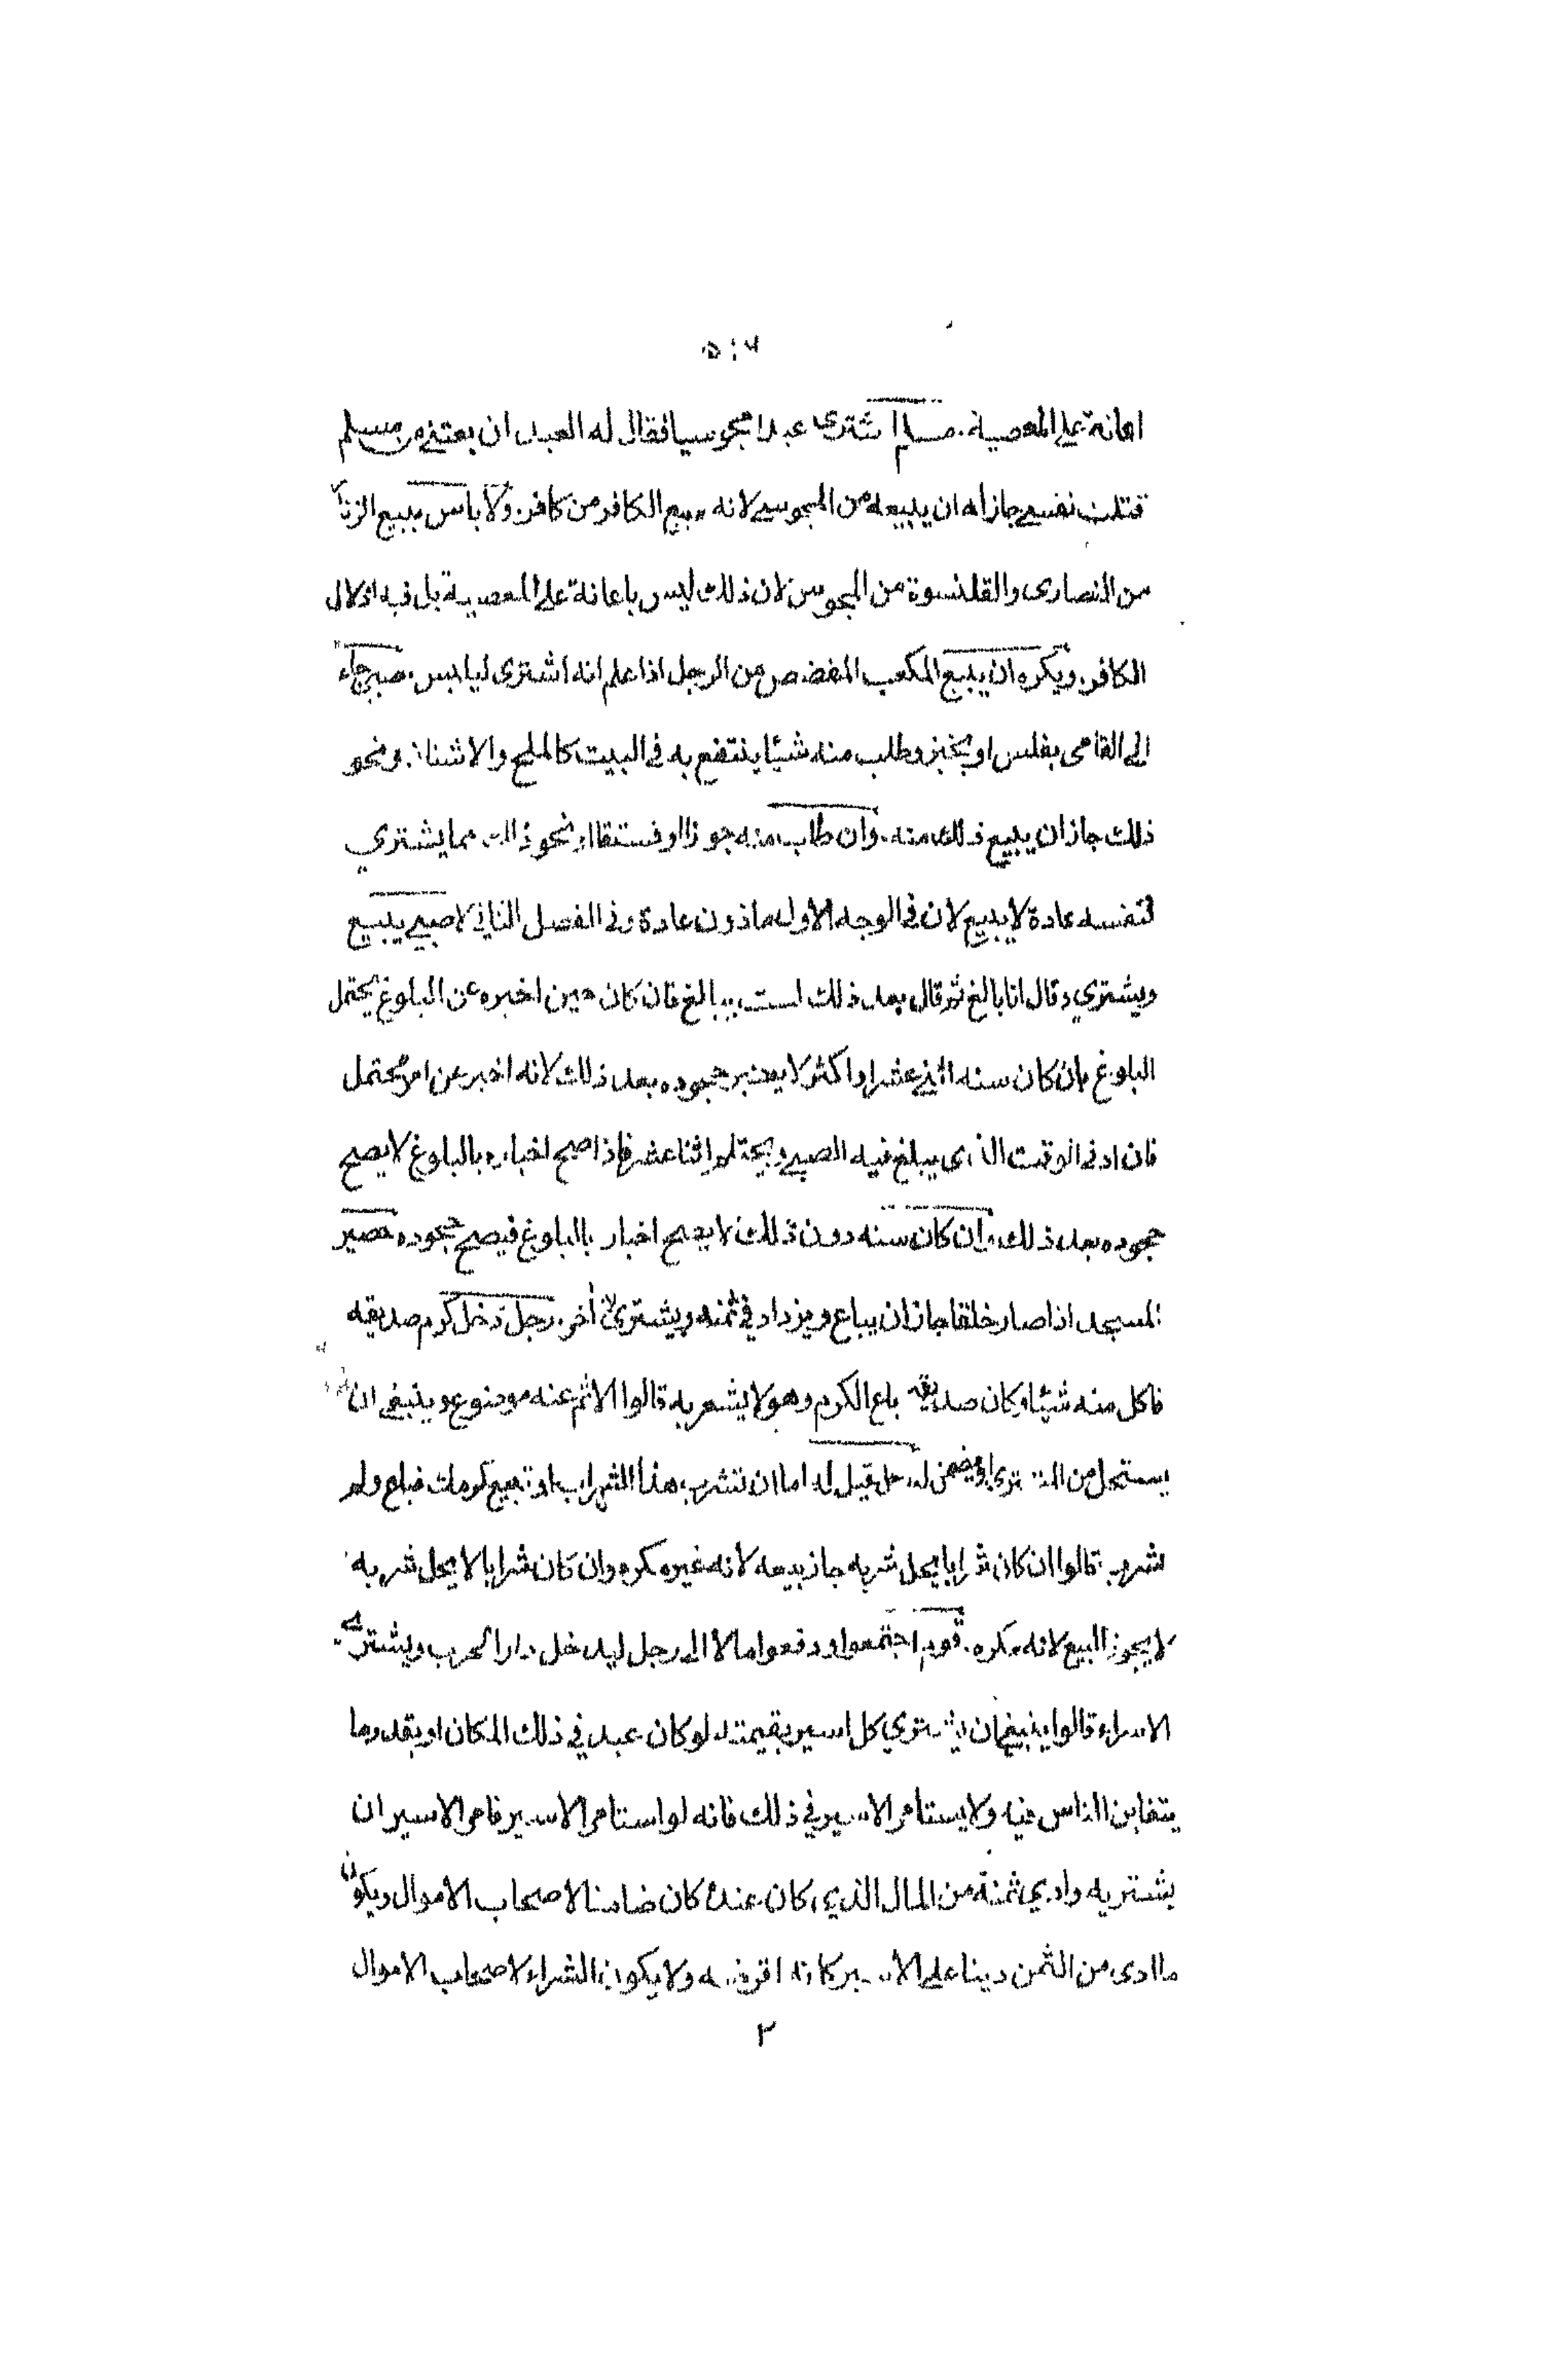 اعانة على المعصية. مسلم اشترى عبدا مجوسيا فقال له العبد ان بعتني من مسلم
قتلت نفسي جاز له ان يبيعه من المجوسي لانه بيع الكافر من كافر. ولا باس ببيع الزنا
من النصارى والقلنسوة من المجوس لان ذلك ليس باعانة على المعصية بل فيه اذلال
الكافر. ويكره ان يبيع المكعب المفضض من الرجل اذا علم انه اشترى ليلبس. صبي جاء
الى القامى بفلس او بخبز وطلب منه شيئا ينتفع به في البيت كالملح والاشنان ونحو
ذلك جاز ان يبيع ذلك منه. وان طلب منه جوزا او فستقا او نحو ذلك مما يشتري
لنفسه عادة لا يبيع لان في الوجه الاول ماذون عادة وفي الفصل الثاني لا صبي يبيع
ويشتري وقال انا بالغ ثم قال بعد ذلك لست ببالغ فان كان حين اخبره عن البلوغ يحتمل
البلوغ بان كان سنه اثني عشر او اكثر لا يعتبر جحوده بعد ذلك لانه اخبر عن امر يحتمل
فان ادنى الوقت الذى يبلغ فيه الصبي ويحتلم اثنا عشر فاذا صح اخباره بالبلوغ لا يصح
جحوده بعد ذلك. وان كان سنه دون ذلك لا يصح اخبار بالبلوغ فيصح جحوده حصير
المسجد اذا صار خلقا جاز ان يباع ويزداد في ثمنه ويشترى اخر. رجل دخل كرم صديقه
فاكل منه شيئا وكان صديقه باع الكرم وهو لا يشعر به قالوا الاثم عنه موضوع وينبغي ان
يستحل من المشترى او يضمن له. رجل قيل له اما ان تشرب هذا الشراب او تبيع كرمك فباع ولم
شرب قالوا ان كان شرابا يحل شربه جاز بيعه لانه غير مكره وان كان شرابا لا يحل شربه
لا يجوز البيع لانه مكره. قوم اجتمعوا ودفعوا مالا الى رجل ليدخل دار الحرب ويشتري
الاسراء قالوا ينبغي ان يشتري كل اسير بقيمته لو كان عبد في ذلك المكان او بقدر ما
يتغابن الناس فيه ولا يستامر الاسير في ذلك فانه لو استامر الاسير فامر الاسير ان
يشتريه وادى ثمنه من المال الذي كان عنده كان ضامنا لاصحاب الاموال ويكون
ما ادى من الثمن دينا على الاسير كانه اقرضه ولا يكون الشراء لاصحاب الاموال
٢